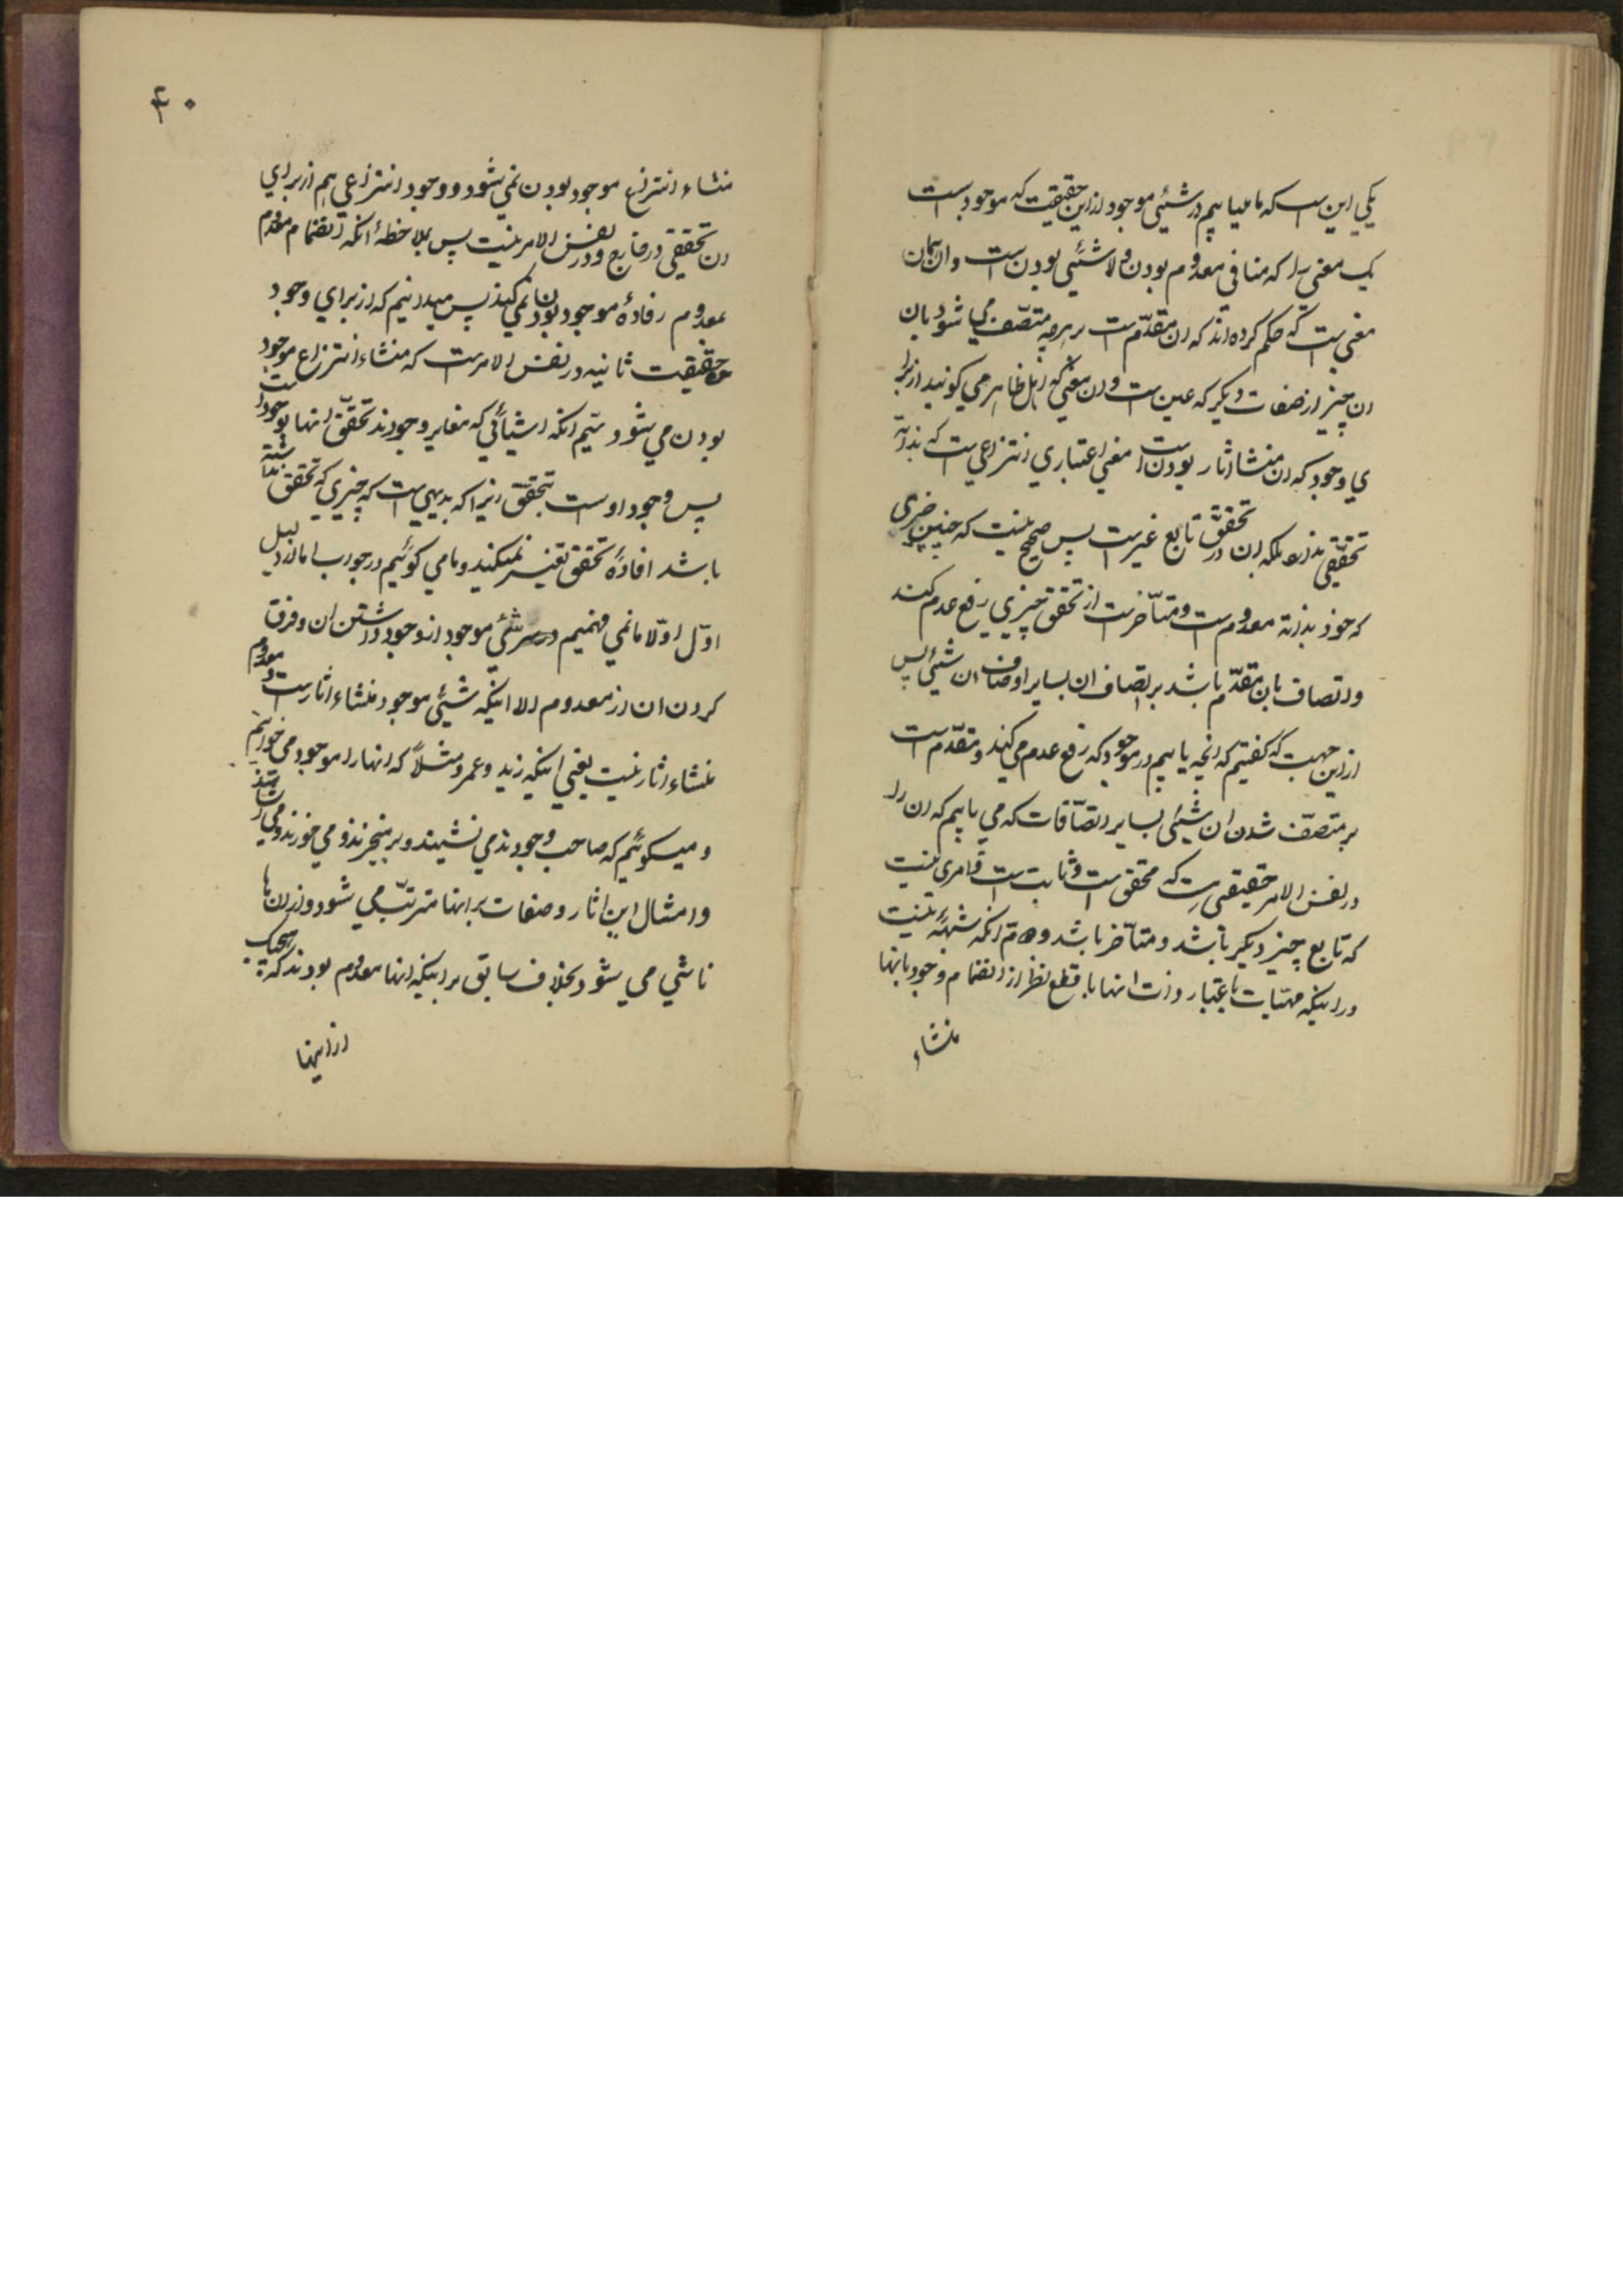 یکی این است که ما میابیم در شیئی موجود از این حقیقت که موجود است
یک معنی را که منافی معدوم بودن و لا شیئی بودن است و آن همان
معنی است که حکم کرده اند که ان مقدّم است بر هرچه متصّف میشود بان
ان چیز از صفات دیگر که عین است و ان معنی که اهل ظاهر می کویند از برا
ی وجود که ان منشا اثار بودن است معنی اعتباری انتزاعی است که بذاته
تحققی ندارد بلکه ان در تحقق تابع غیر است پس صحیح نیست که چنین چیزی
که خود بذاته معدوم است و متاّخر است از تحقق چیزی رفع عدم کند
و اتصاف بان مقدّم باشد بر اتصاف ان بسایر اوصاف ان شیئی پس
از این جهت که کفتیم که انچه یابیم در موجود که رفع عدم می کند و مقدّم است
بر متصّف شدن ان شیئی بسایر اتصّافات که می یابیم که ان را
در نفس الامر حقیقی است که محقق است و ثابت است و امری نیست
که تابع چیز دیکر باشد و متاّخر باشد و دویّم انکه شبههٔ نیست
در اینکه مهیّات باعتبار ذات انها با قطع نظر از انضمام وجود بانها
منشاء
۴۰
منشاء انتزاع موجود بودن نمی شود و وجود انتزاعی هم از برای
ان تحققی در خارج و در نفس الامر نیست پس بملاحظهٔ انکه انضمام معدوم
بمعدوم افادهٔ موجود بودن نمی کند پس میدانیم که از برای وجود
حقیقت ثانیه در نفس الامر است که منشاء انتزاع موجود
بودن می شود سیّم انکه اشیائی که مغایر وجودند تحقّق انها بوجود است
پس وجود اولی است بتحقّق زیرا که بدیهی است که چیزی که تحقق نداشته
باشد افادهٔ تحقق بغیر نمیکند و ما می کوئیم در جواب اما از دلیل
اوّل اوّلا ما نمی فهمیم در شیئی موجود از وجود داشتن ان و فرق
کردن ان از معدوم الا اینکه شیئی موجود منشاء اثار است و معدوم
منشاء اثار نیست یعنی اینکه زید و عمرو مثلاً که انها را موجود می خوانیم
و میکوئیم که صاحب وجودند می نشینند و بر میخیزند و می خورند و می
و امثال این اثار و صفات بر انها مترتّب می شود و از انها
ناشی می شود بخلاف سابق بر اینکه انها معدوم بودند که هیچیک
از اینها